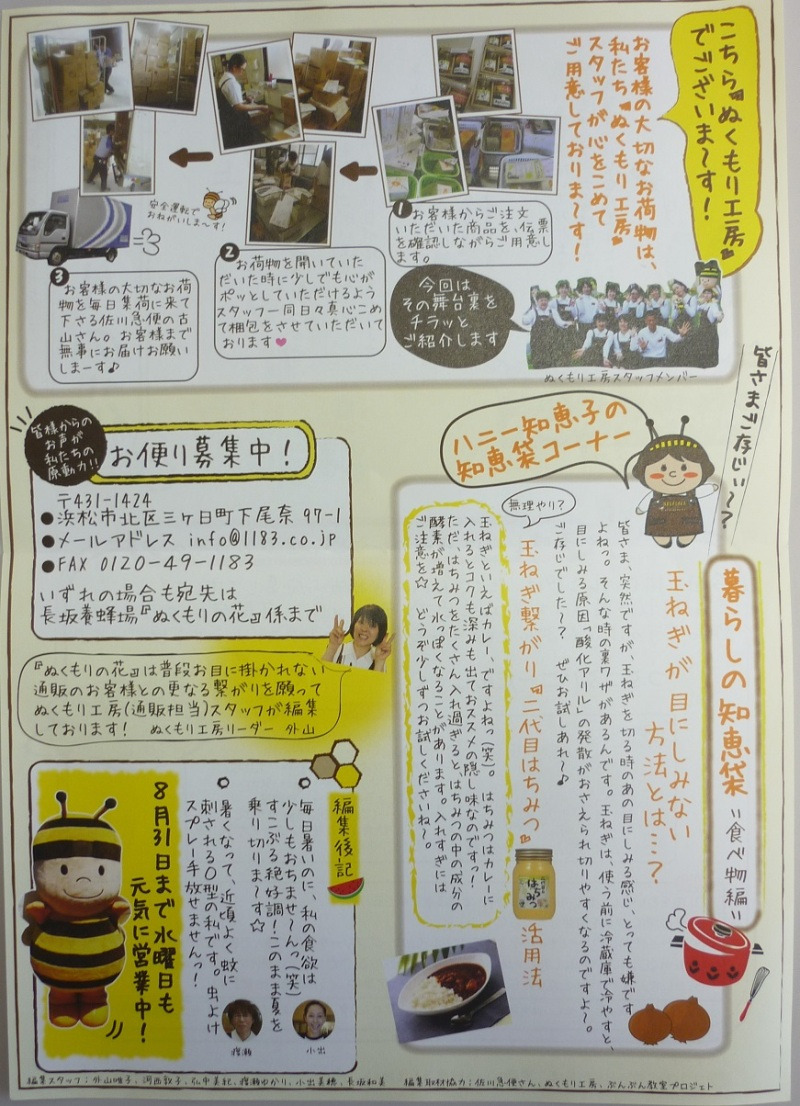 こちら『ぬくもり工房』
でございま〜す！
お客様の大切なお荷物は、
私たち『ぬくもり工房』
スタッフが心をこめて
ご用意しておりま〜す！
❶お客様からご注文
いただいた商品を、伝票
を確認しながらご用意し
ます。
今回は
その舞台裏を
チラッと
ご紹介します
ぬくもり工房スタッフメンバー
❷お荷物を開いていた
だいた時に少しでも心が
ポッとしていただけるよう
スタッフ一同日々真心こめ
て梱包をさせていただいて
おります♥
安全運転で
おねがいしま〜す！
❸お客様の大切なお荷
物を毎日集荷に来て
下さる佐川急便の古
山さん。お客様まで
無事にお届けお願い
しまーす♪
皆さまご存じぃ〜？
ハニー知恵子の
知恵袋コーナー
暮らしの知恵袋
〃食べ物編〃
玉ねぎが目にしみない
方法とは…？
皆さま、突然ですが、玉ねぎを切る時のあの目にしみる感じ、とっても嫌です
よねっ。そんな時の裏ワザがあるんです。玉ねぎは、使う前に冷蔵庫で冷やすと、
目にしみる原因『酸化アリル』の発散がおさえられ切りやすくなるのですよ〜。
ご存じでした〜？　ぜひお試しあれ〜♪
無理やり？
玉ねぎ繋がり『二代目はちみつ』活用法
玉ねぎといえばカレー、ですよねっ（笑）。はちみつはカレーに
入れるとコクも深みも出ておススメの隠し味なのですっ！
ただ、はちみつをたくさん入れ過ぎると、はちみつの中の成分の
酵素が増えて水っぽくなることがあります。入れすぎには
ご注意を☆　どうぞ少しずつお試しくださいね〜。
はちみつ
皆様からの
お声が
私たちの
原動力！！
お便り募集中！
〒431-1424
●浜松市北区三ヶ日町下尾奈 97-1
●メールアドレス info@1183.co.jp
●FAX 0120-49-1183
いずれの場合も宛先は
長坂養蜂場『ぬくもりの花』係まで
『ぬくもりの花』は普段お目に掛かれない
通販のお客様との更なる繋がりを願って
ぬくもり工房(通販担当)スタッフが編集
しております！　ぬくもり工房リーダー 外山
編集後記
毎日暑いのに、私の食欲は
少しもおちませ〜んっ（笑）
すこぶる絶好調！このまま夏を
乗り切りま〜す☆
小出
暑くなって、近頃よく蚊に
刺されるO型の私です。虫よけ
スプレー手放せませんっ！
渡瀬
8月31日まで水曜日も
元気に営業中！
編集スタッフ：外山唯子、河西敦子、弘中美紀、渡瀬ゆかり、小出美穂、長坂和美
編集取材協力：佐川急便さん、ぬくもり工房、ぶんぶん教室プロジェクト